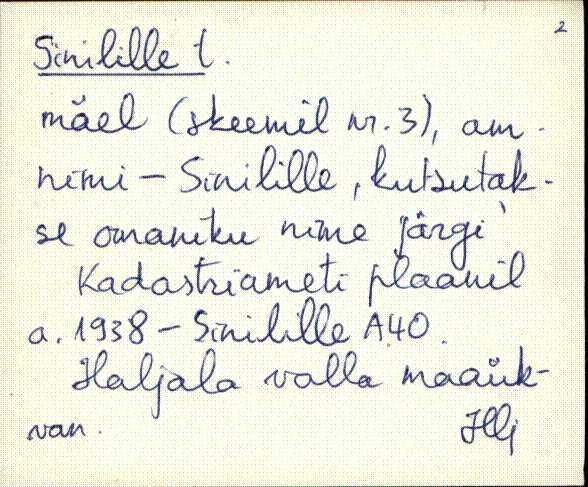 2
Sinilille t.
mäel (skeemil nr. 3), am.
nimi – Sinilille, kutsutak-
se omaniku nime järgi
Kadastriameti plaanil
a. 1938 – Sinilille A40.
Haljala valla maaük-
van.
Hlj